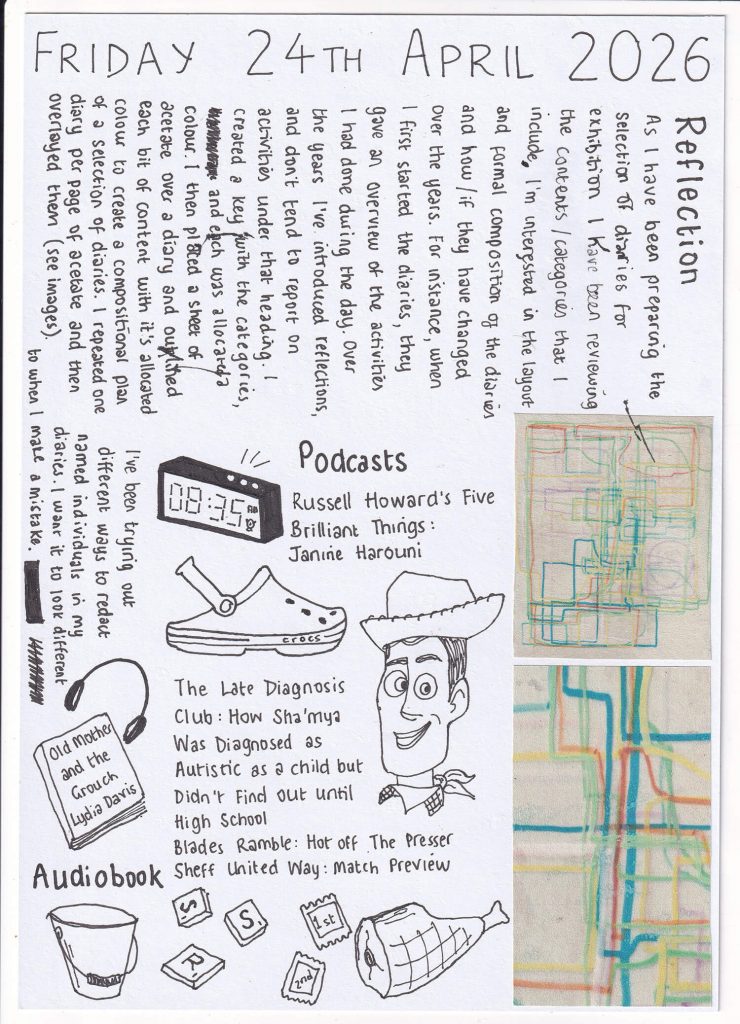 FRIDAY 24TH APRIL 2026
Reflection
As I have been preparing the
selection of diaries for
exhibition I have been reviewing
the contents/categories that I
include, I'm interested in the layout
and formal composition of the diaries
and how/if they have changed
over the years. For instance, when
I first started the diaries, they
gave an overview of the activities
I had done during the day. Over
the years I've introduced reflections,
and don't tend to report on
activities under that heading. I
created a key with the categories,
and each was allocated a
colour. I then placed a sheet of
acetate over a diary and outlined
each bit of content with it's allocated
colour to create a compositional plan
of a selection of diaries. I repeated one
diary per page of acetate and then
overlayed them (see images).
I've been trying out
different ways to redact
named individuals in my
diaries. I want it to look different
to when I make a mistake.
Podcasts
08:35 AM
Russell Howard's Five
Brilliant Things:
Janine Harouni
crocs
The Late Diagnosis
Club: How Sha'mya
Was Diagnosed as
Autistic as a child but
Didn't Find Out until
High School
Blades Ramble: Hot off The Presser
Sheff United Way: Match Preview
Old Mother
and the
Grouch
Lydia Davis
Audiobook
S
S
R
1st
2nd